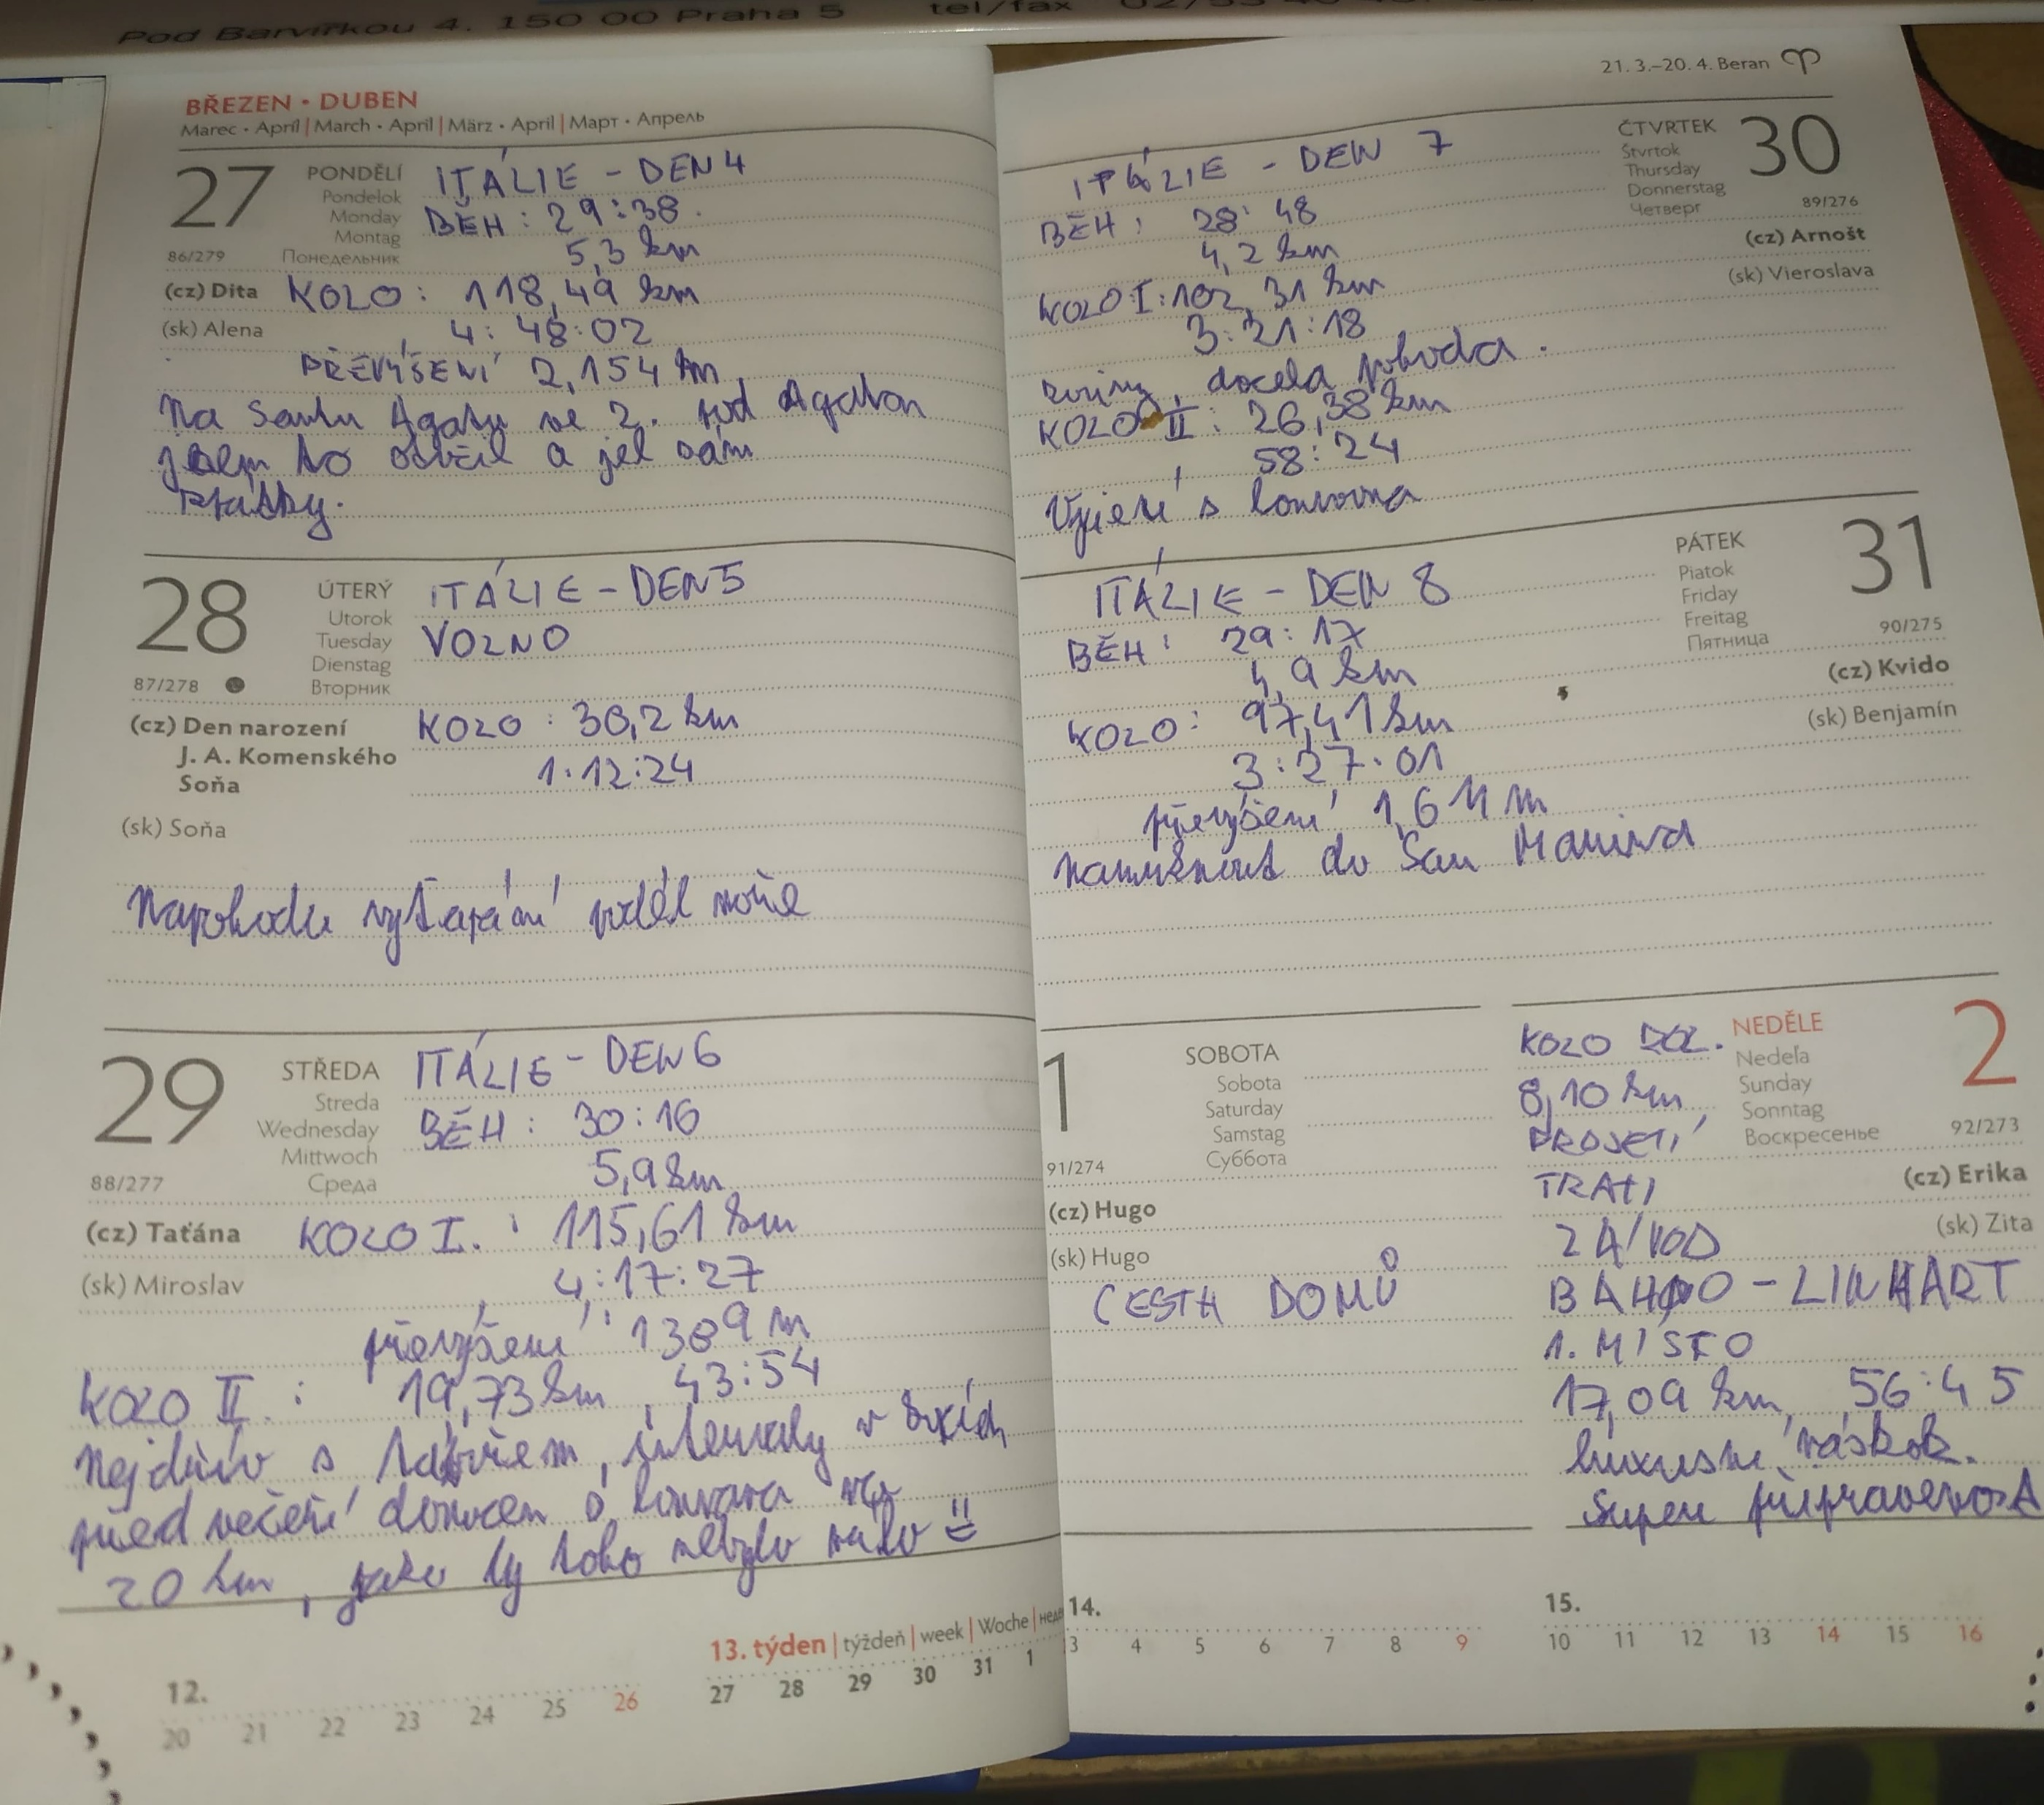 Pod Barvířkou 4. 150 00 Praha 5 tel/fax
BŘEZEN • DUBEN
Marec • Apríl | March • April | März • April | Март • Апрель
27
PONDĚLÍ
Pondelok
Monday
Montag
Понедельник
86/279
(cz) Dita
(sk) Alena
ITÁLIE - DEN 4
BĚH : 29:38.
5,3 km
KOLO : 118,49 km
4:48:02
PŘEVÝŠENÍ 2,154 km
Na Santu Agatu ve 2. pod
jsem to otočil a jel sám
zkratky.
28
ÚTERÝ
Utorok
Tuesday
Dienstag
Вторник
87/278
(cz) Den narození
J. A. Komenského
Soňa
(sk) Soňa
ITÁLIE - DEN 5
VOLNO
KOLO : 30,2 km
1:12:24
Napohodu vyťapání podél moře
29
STŘEDA
Streda
Wednesday
Mittwoch
Среда
88/277
(cz) Taťána
(sk) Miroslav
ITÁLIE - DEN 6
BĚH : 30:16
5,9 km
KOLO I. : 115,61 km
4:17:27
převýšení : 1309 m
KOLO II. : 19,73 km, 43:54
Nejdřív s , intervaly v
před večeří donucen
20 km, jako by toho nebylo málo
12.
20 21 22 23 24 25 26
13. týden | týždeň | week | Woche |
27 28 29 30 31 1
21. 3.–20. 4. Beran
ČTVRTEK
Štvrtok
Thursday
Donnerstag
Четверг
30
89/276
(cz) Arnošt
(sk) Vieroslava
ITÁLIE - DEN 7
BĚH : 28:48
4,2 km
KOLO I : 102,31 km
3:21:18
roviny, docela pohoda.
KOLO II : 26,38 km
58:24
Vyjetí s
PÁTEK
Piatok
Friday
Freitag
Пятница
31
90/275
(cz) Kvido
(sk) Benjamín
ITÁLIE - DEN 8
BĚH : 29:17
4,9 km
KOLO : 97,41 km
3:27:01
převýšení 1,611 m
do San Marina
1
SOBOTA
Sobota
Saturday
Samstag
Суббота
91/274
(cz) Hugo
(sk) Hugo
CESTA DOMŮ
NEDĚLE
Nedeľa
Sunday
Sonntag
Воскресенье
2
92/273
(cz) Erika
(sk) Zita
KOLO
8,10 km
PROJETÍ
TRATI
ZÁVOD
BAHNO - LINHART
1. MÍSTO
17,09 km, 56:45
luxusní náskok.
Super připravenost
14.
3 4 5 6 7 8 9
15.
10 11 12 13 14 15 16